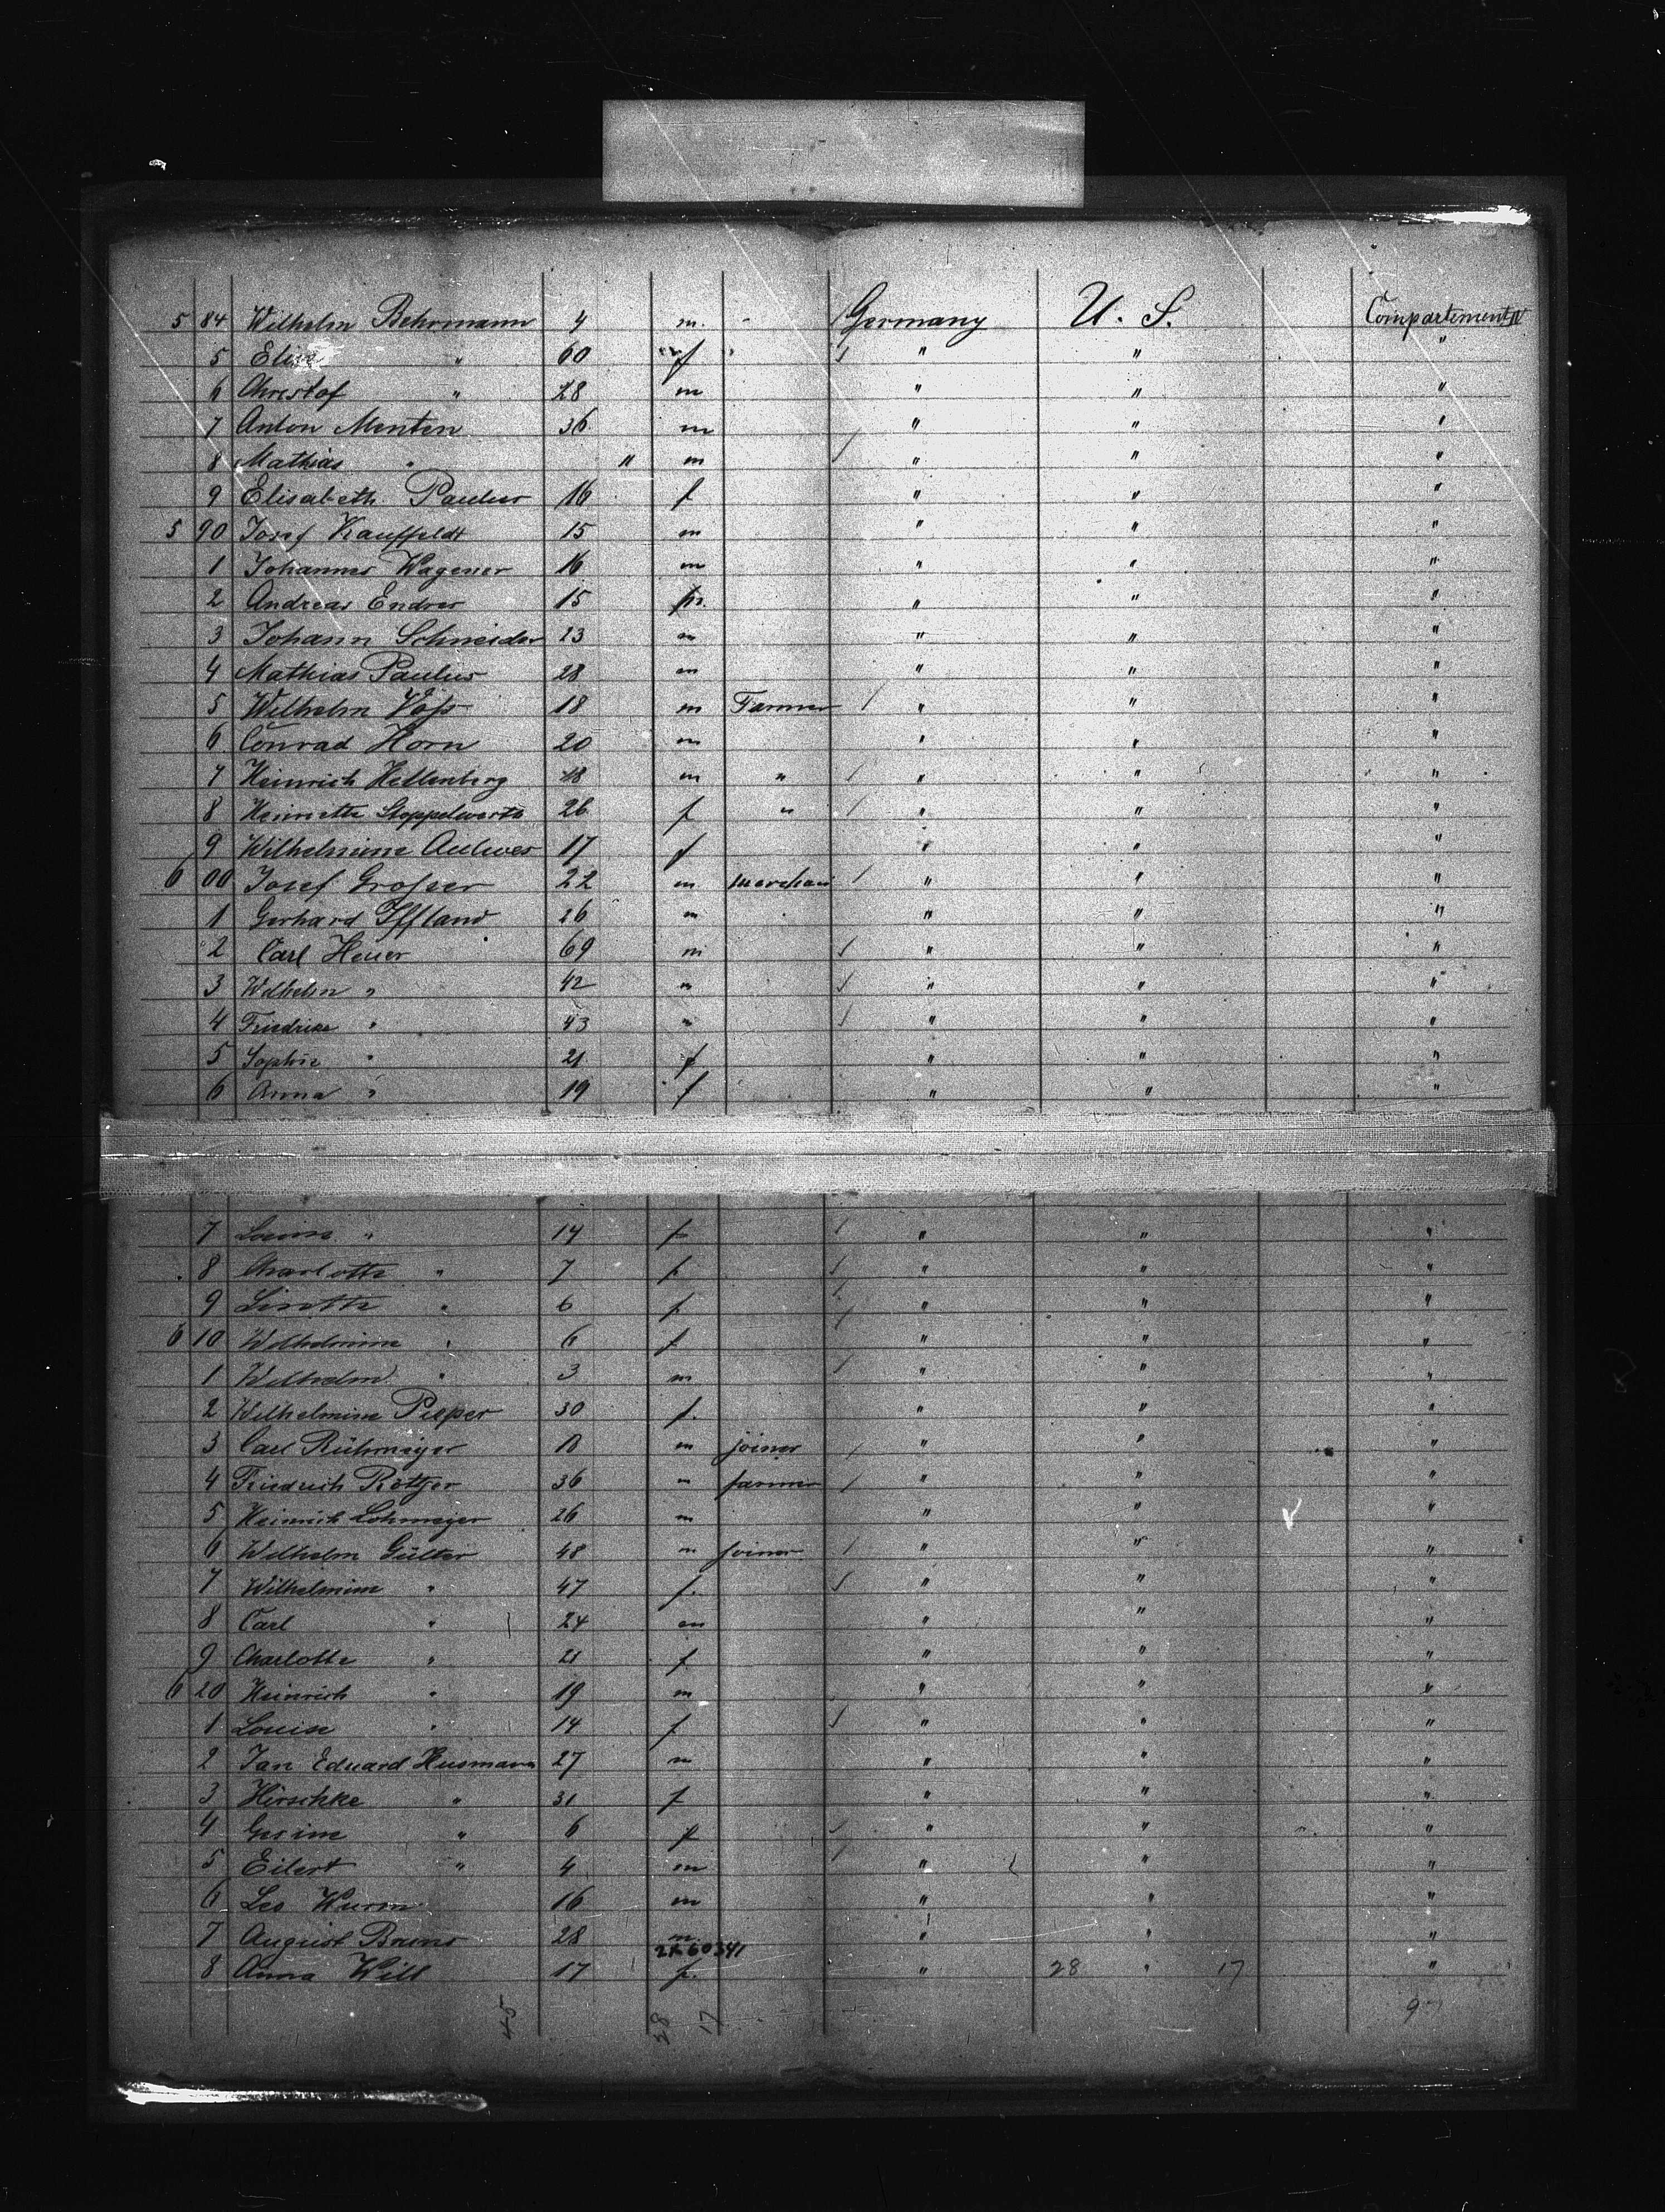 5 84 Wilhelm Behrmann 4 m. " Germany U. S. Compartement IV
5 Elise " 60 f " " " "
6 Christof " 28 m " " "
7 Anton Menten 36 m " " "
8 Mathias " 11 m " " "
9 Elisabeth Paulus 16 f " " "
5 90 Josef Kauffeldt 15 m " " "
1 Johannes Wagener 16 m " " "
2 Andreas Endres 15 m. " " "
3 Johann Schneider 23 m " " "
4 Mathias Paulus 28 m " " "
5 Wilhelm Voss 18 m Farmer " " "
6 Conrad Horn 20 m " " "
7 Heinrich Hellenberg 48 m " " " "
8 26 f " " " "
9 Wilhelmine 17 f " " "
6 00 Josef Grosser 22 m merchan " " "
1 Gerhard Iffland 26 m " " "
2 Carl Heuer 69 m " " "
3 Wilhelm " 42 m " " "
4 Friedrike " 43 " " "
5 Sophie " 21 f " " "
6 Anna " 19 f " " "
7 Louise " 14 f " " "
8 Charlotte " 7 f " " "
9 Linette " 6 f " " "
6 10 Wilhelmine " 6 f " " "
1 Wilhelm " 3 m " " "
2 Wilhelmine Pieper 30 f. " " "
3 Carl Rühmeyer 18 m joiner " " "
4 Friedrich Röttger 36 m farmer " " "
5 Heinrich Lohmeyer 26 m " " "
6 Wilhelm Gülter 48 m joiner " " "
7 Wilhelmine " 47 f. " " "
8 Carl " 24 m " " "
9 Charlotte " 21 f " " "
6 20 Heinrich " 19 m " " "
1 Louise " 14 f " " "
2 Jan Eduard Husmann 27 m " " "
3 Hirschke " 31 f " " "
4 Gesine " 6 f " " "
5 Eilert " 4 m " " "
6 Leo Wurm 16 m " " "
7 August Bruns 28 m. " " "
2K60341
8 Anna Will 17 f. " 28 " 17 "
45 28 17 9